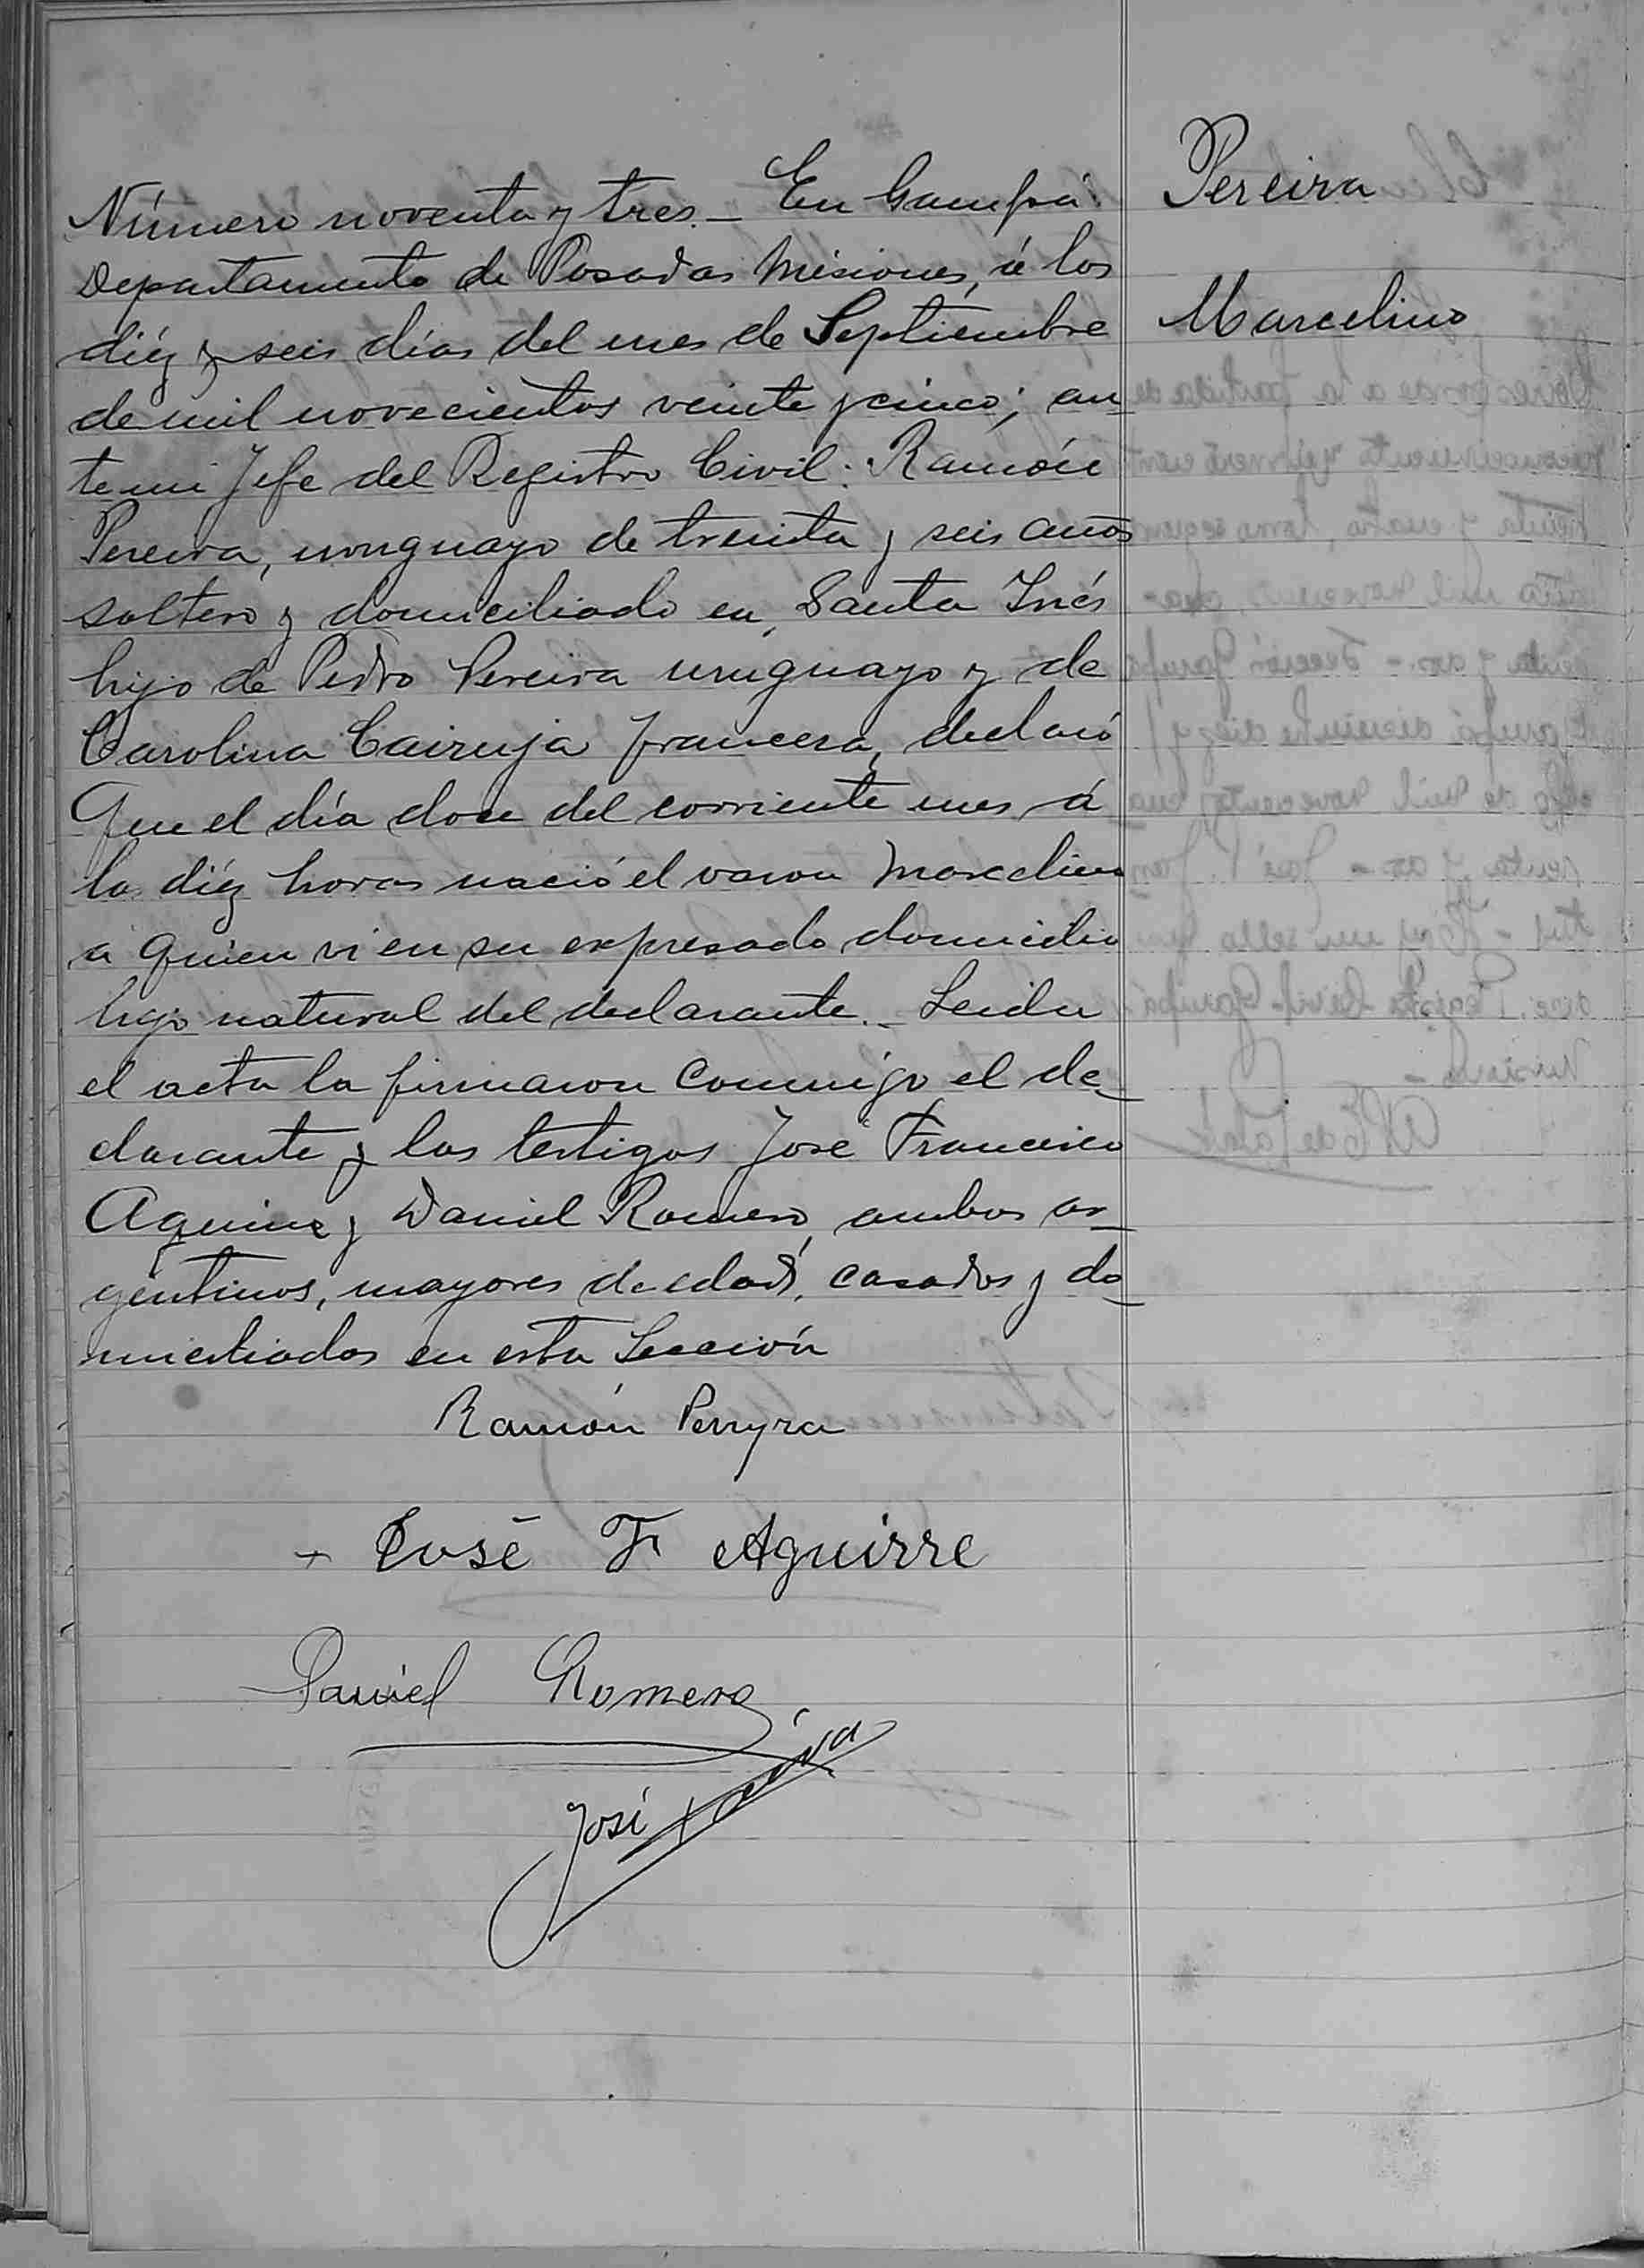 Pereira
Marcelino
Número noventa y tres. _ En Garupá.
Departamento de Posadas Misiones, á los
diéz y seis días del mes de Septiembre
de mil novecientos veinte y cinco; an_
te mi Jefe del Registro Civil: Ramón
Pereira, uruguayo de treinta y seis años
soltero y domiciliado en, Santa Inés
hijo de Pedro Pereira uruguayo y de
Carolina francesa, declaró
Que el día doce del corriente mes á
las diéz horas nació el varon Marcelino
a quien vi en su expresado domicilio
hijo natural del declarante. _ Leida
el acta la firmaron conmigo el de_
clarante y los testigos José Francisco
Aguirre y Daniel Romero, ambos ar_
gentinos, mayores de edad, casados y do_
miciliados en esta Sección
Ramón Perryra
José F Aguirre
Daniel Romero
José